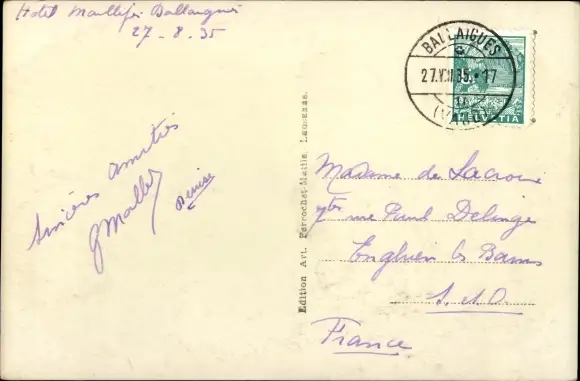 Hotel Maillefer Ballaigues
27-8.35
BALLAIGUES
27.VIII.35.-17
(VAUD)
HELVETIA
Sincères amitiés
GMaller
Denise
Edition Art. Perrochet-Matile, Lausanne.
Madame de Lacroix
rue Paul Delinge
Enghien les Bains
S. et O.
France